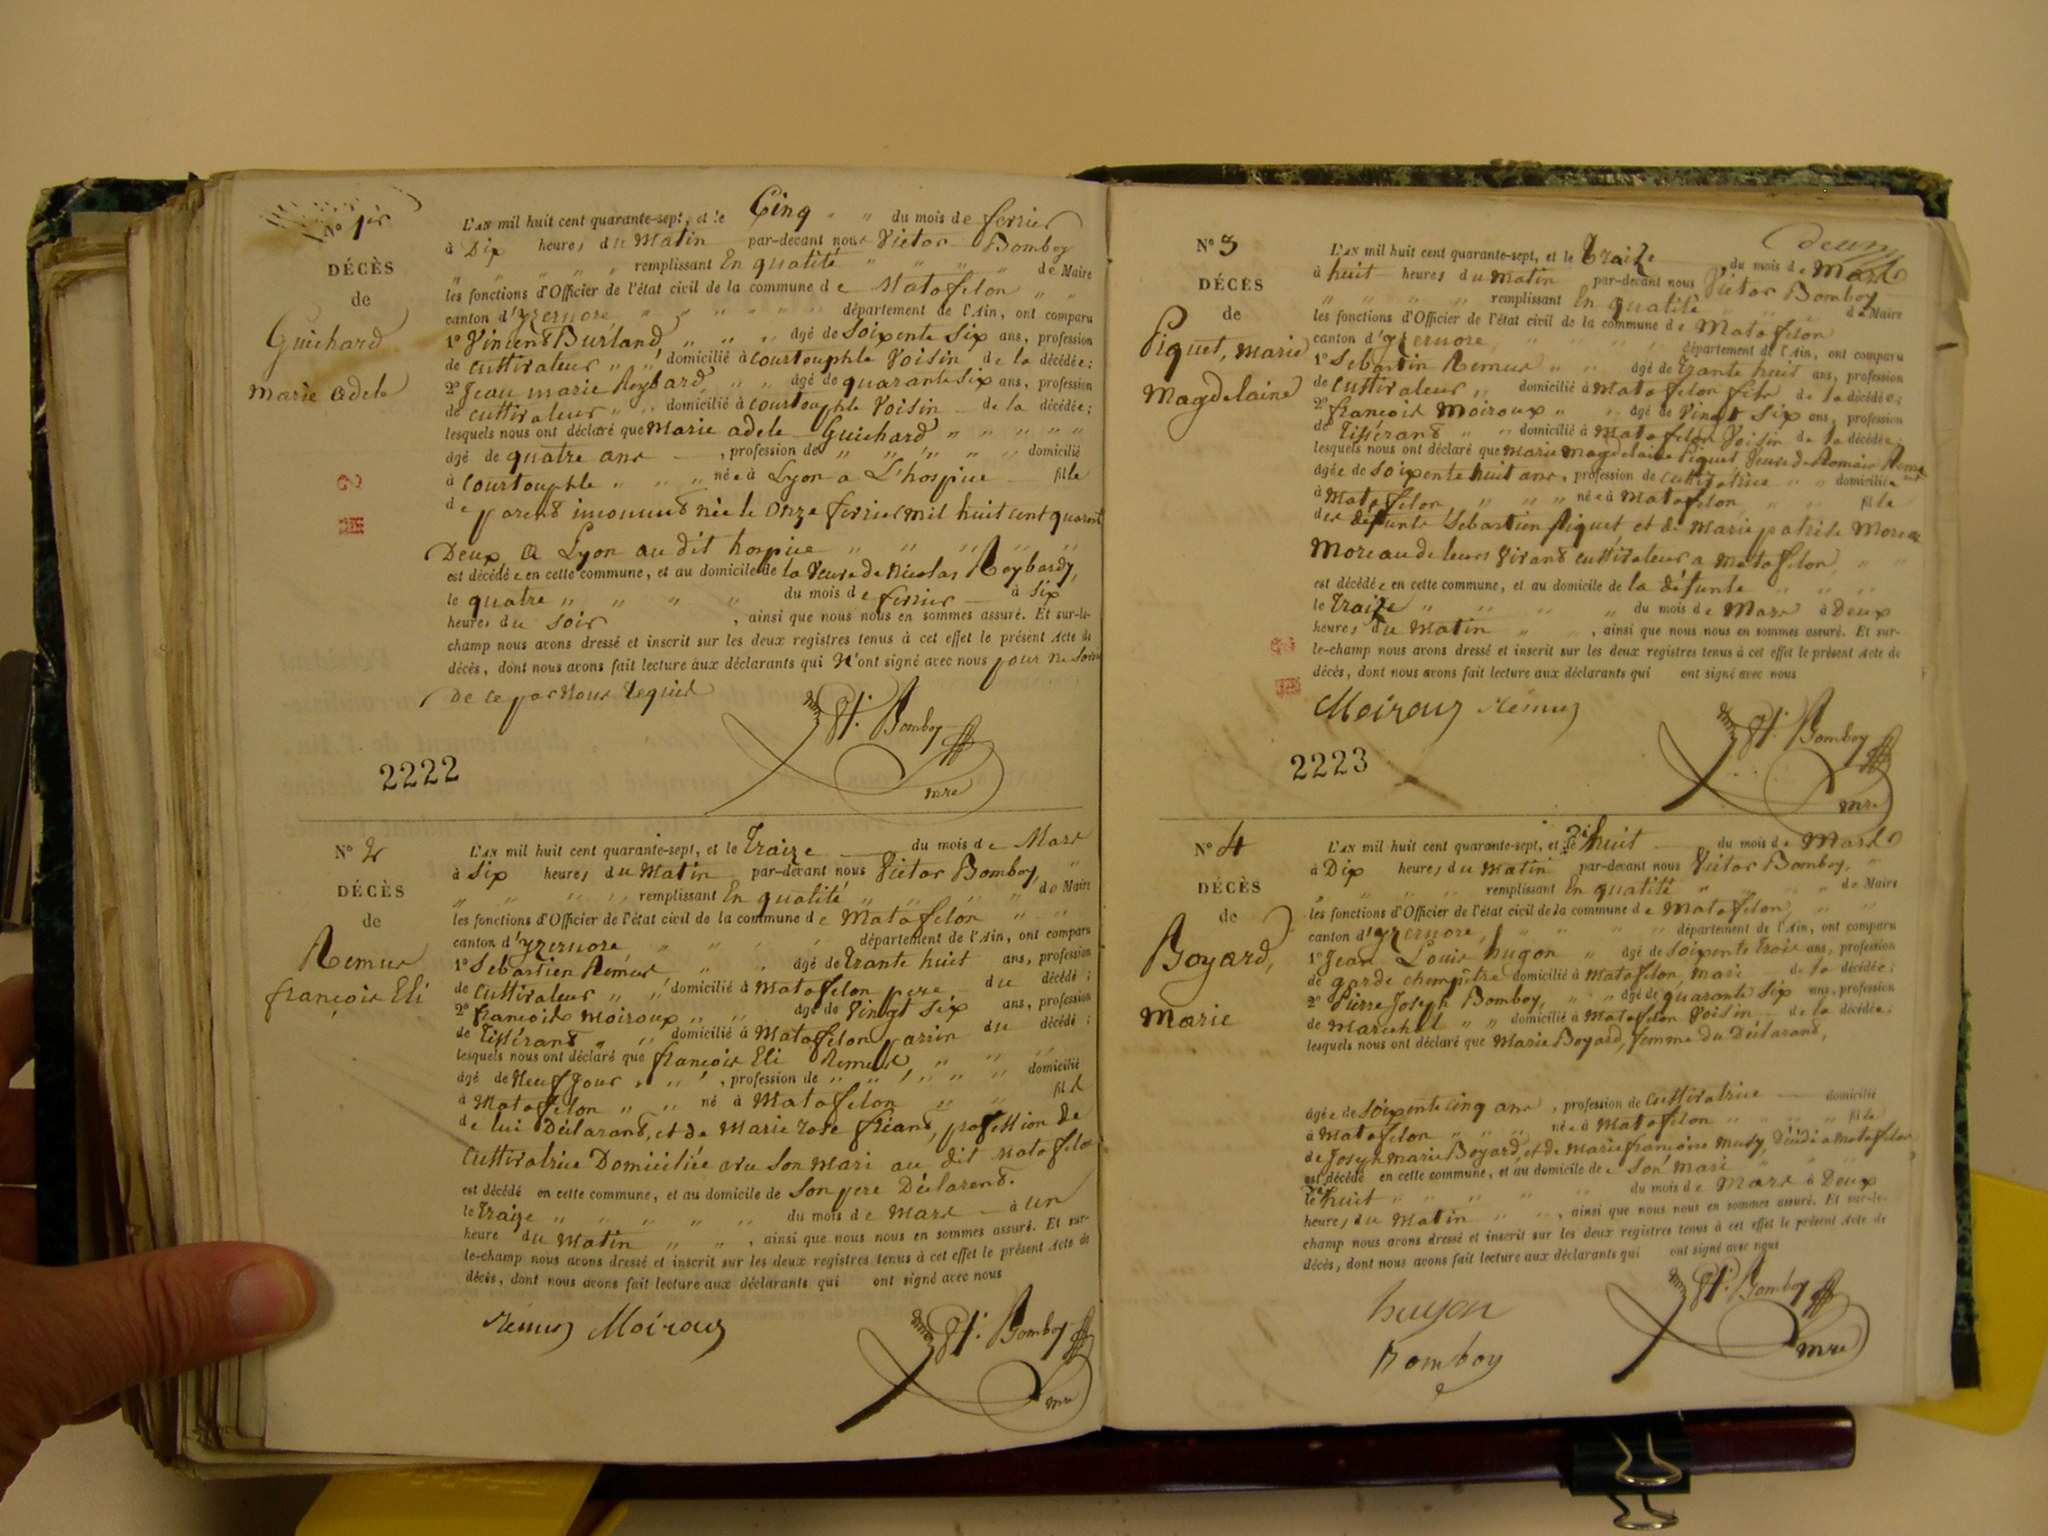 N° 1er
DÉCÈS
de
Guichard
marie adele
L'AN mil huit cent quarante-sept, et le Cinq " " du mois de ferrier
à Dix heures du matin par-devant nous Victor Bomboy
" " " " " remplissant En qualité " " " de Maire
les fonctions d'Officier de l'état civil de la commune de Matafelon
canton d'yzernore " " " " " département de l'Ain, ont comparu
1° Vincent Burland " " âgé de Soixente Six ans, profession
de cuttivateur " " domicilié à courtouphle Voisin de la décédée;
2° Jeau marie Reybard " " âgé de quarante Six ans, profession
de cuttivateur " " domicilié à courtouphle Voisin de la décédée;
lesquels nous ont déclaré que marie adele Guichard " " " " "
âgé de quatre ans , profession de " " " " " domicilié
à courtouphle " " " née à Lyon a L'hospice fille
de parens inconnus née le Onze ferrier mil huit cent quarent
Deux a Lyon au dit hospice " " " "
est décédée en cette commune, et au domicile de la Veuve de Nicolas Reybardy,
le quatre " " " " du mois de ferrier à Six
heures du soir , ainsi que nous nous en sommes assuré. Et sur-le-
champ nous avons dressé et inscrit sur les deux registres tenus à cet effet le présent Acte de
décès, dont nous avons fait lecture aux déclarants qui N'ont signé avec nous pour ne Savoir
de ce par Nous Requis
Bomboy
mre
2222
N° 2
DÉCÈS
de
Remus
françois Eli
L'AN mil huit cent quarante-sept, et le Traize du mois de Mars
à Six heures du Matin par-devant nous Victor Bomboy, "
" " " " remplissant En qualité " " " de Maire
les fonctions d'Officier de l'état civil de la commune de Matafelon " "
canton d'yzernore, " " " " département de l'Ain, ont comparu
1° Sebastien Remus " " âgé de Trante huit ans, profession
de cuttivateur " " domicilié à Matafelon pere du décédé;
2° françois moiroux " " âgé de Vingt Six ans, profession
de Tisserand " " domicilié à Matafelon parin du décédé;
lesquels nous ont déclaré que françois Eli Remus " " "
âgé de Neuf Jour " " , profession de " " " " " domicilié
à Matafelon " " né à Matafelon " " fils
de lui Déclarant, et de Marie rose friant, profession de
Cuttivatrice Domiciliée avec Son mari au dit Matafelon
est décédé en cette commune, et au domicile de Son pere Déclarent.
le Traize " " " " " du mois de Mars à un
heure du Matin " " , ainsi que nous nous en sommes assuré. Et sur-
le-champ nous avons dressé et inscrit sur les deux registres tenus à cet effet le présent Acte de
décès, dont nous avons fait lecture aux déclarants qui ont signé avec nous
Rémus Moiroux Bomboy
mre
deux
N° 3
DÉCÈS
de
Piquet, marie
Magdelaine
L'AN mil huit cent quarante-sept, et le Traize du mois de Mars
à huit heures du matin par-devant nous Victor Bomboy
" " " " remplissant En qualité de Maire
les fonctions d'Officier de l'état civil de la commune de Matafelon
canton d'yzernore, " " " " département de l'Ain, ont comparu
1° Sebastin Remus " " âgé de Trante huit ans, profession
de cuttivateur " " domicilié à Matafelon fils de la décédée;
2° françois Moiroux " " âgé de Vingt Six ans, profession
de Tisserand " " domicilié à Matafelon Voisin de la décédée;
lesquels nous ont déclaré que marie magdelaine Piquet, Veuve de Romain Remus
âgée de Soixente huit ans, profession de cuttivatrice " " domiciliée
à Matafelon " " " née à Matafelon " " fille
des défunts Sebastien Piquet et de Marie patrile Moreau
Moreau de leurs vivans cuttivateur a Matafelon " "
est décédée en cette commune, et au domicile de la défunte " " "
le Traize " " " " du mois de Mars à Deux
heures du Matin " " , ainsi que nous nous en sommes assuré. Et sur-
le-champ nous avons dressé et inscrit sur les deux registres tenus à cet effet le présent Acte de
décès, dont nous avons fait lecture aux déclarants qui ont signé avec nous
Moiroux Rémus Bomboy
mre
2223
N° 4
DÉCÈS
de
Boyard,
Marie
L'AN mil huit cent quarante-sept, et le Dixhuit du mois de Mars
à Dix heures du Matin par-devant nous Victor Bomboy, "
" " " " remplissant En qualité " " " de Maire
les fonctions d'Officier de l'état civil de la commune de Matafelon, " "
canton d'yzernore, " " " " département de l'Ain, ont comparu
1° Jean Louis hugon " âgé de Soixente Trois ans, profession
de garde champêtre domicilié à Matafelon, mari de la décédée;
2° Pierre Joseph Bomboy, " " âgé de quarante Six ans, profession
de marichal " " domicilié à Matafelon Voisin de la décédée;
lesquels nous ont déclaré que Marie Boyard, femme du Déclarant,
âgée de Soixente Cinq ans, profession de Cuttivatrice domicilié
à Matafelon " " " née à Matafelon " " " fille
de Joseph marie Boyard, et de Marie françoise musy, Décédé a Matafelon
est décédée en cette commune, et au domicile de Son mari " " "
le Dixhuit " " " " " du mois de Mars à Deux
heures du Matin " " , ainsi que nous nous en sommes assuré. Et sur-le-
champ nous avons dressé et inscrit sur les deux registres tenus à cet effet le présent Acte de
décès, dont nous avons fait lecture aux déclarants qui ont signé avec nous
hugon Bomboy
Bomboy mre